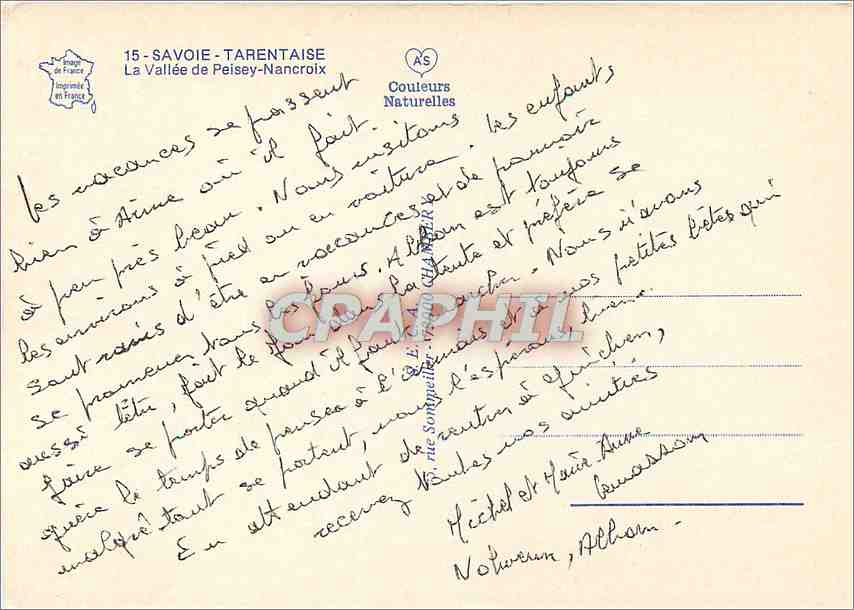 Image
de France
Imprimée
en France
15 - SAVOIE - TARENTAISE
La Vallée de Peisey-Nancroix
AS
Couleurs
Naturelles
Les vacances se passent
bien à Aime où il fait
à peu près beau. Nous visitons
les environs à pied ou en voiture. Les enfants
sont ravis d'être en vacances et de pouvoir
se promener tous les jours. Alban est toujours
aussi têtu, fait le fou dans la tente et préfère se
faire se porter quand il faut marcher. Nous n'avons
guère le temps de penser à l' et à nos petites bêtes qui
malgré tout se portent, nous l'espérons, bien.
En attendant de rentrer à
recevez toutes nos amitiés
Michel et Marie-Anne
Alban
rue Sommeiller - 73000 CHAMBERY
CPAPHIL